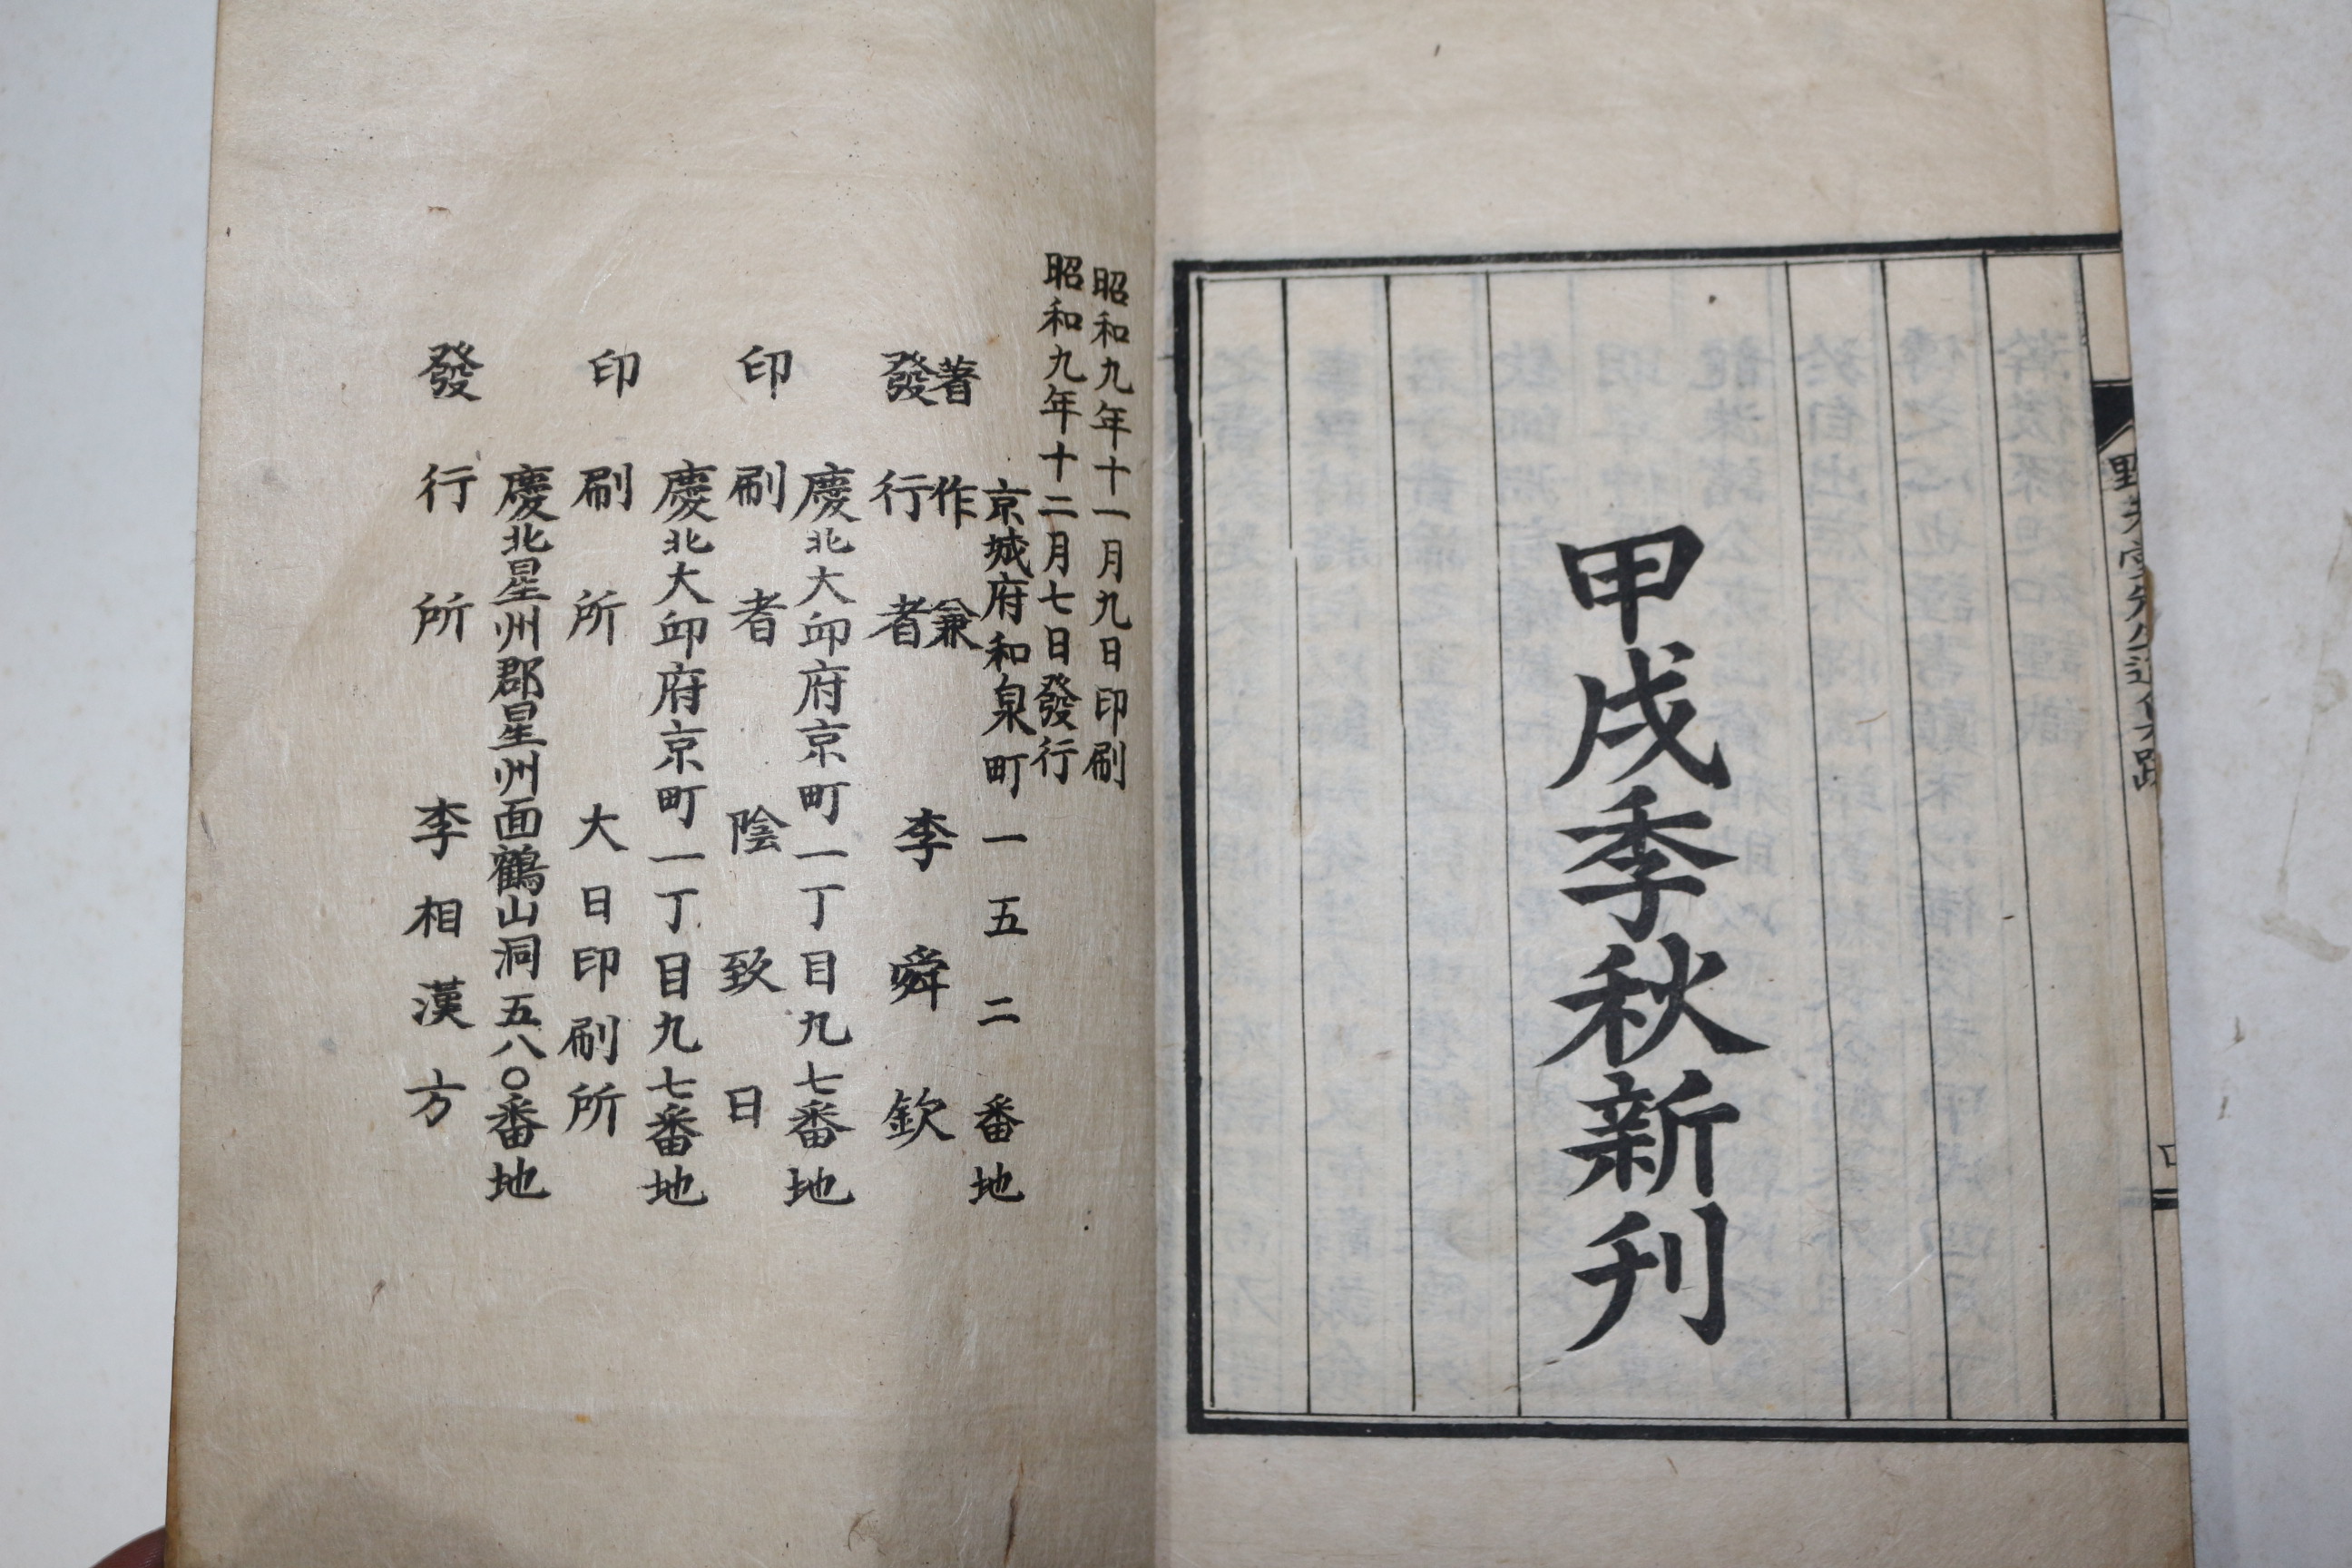 甲戌季秋新刊
昭和九年十一月九日印刷
昭和九年十二月七日發行
京城府和泉町一五二番地
著作兼
發行者 李舜欽
慶北大邱府京町一丁目九七番地
印刷者 陰致日
慶北大邱府京町一丁目九七番地
印刷所 大日印刷所
慶北星州郡星州面鶴山洞五八〇番地
發行所 李相漢方